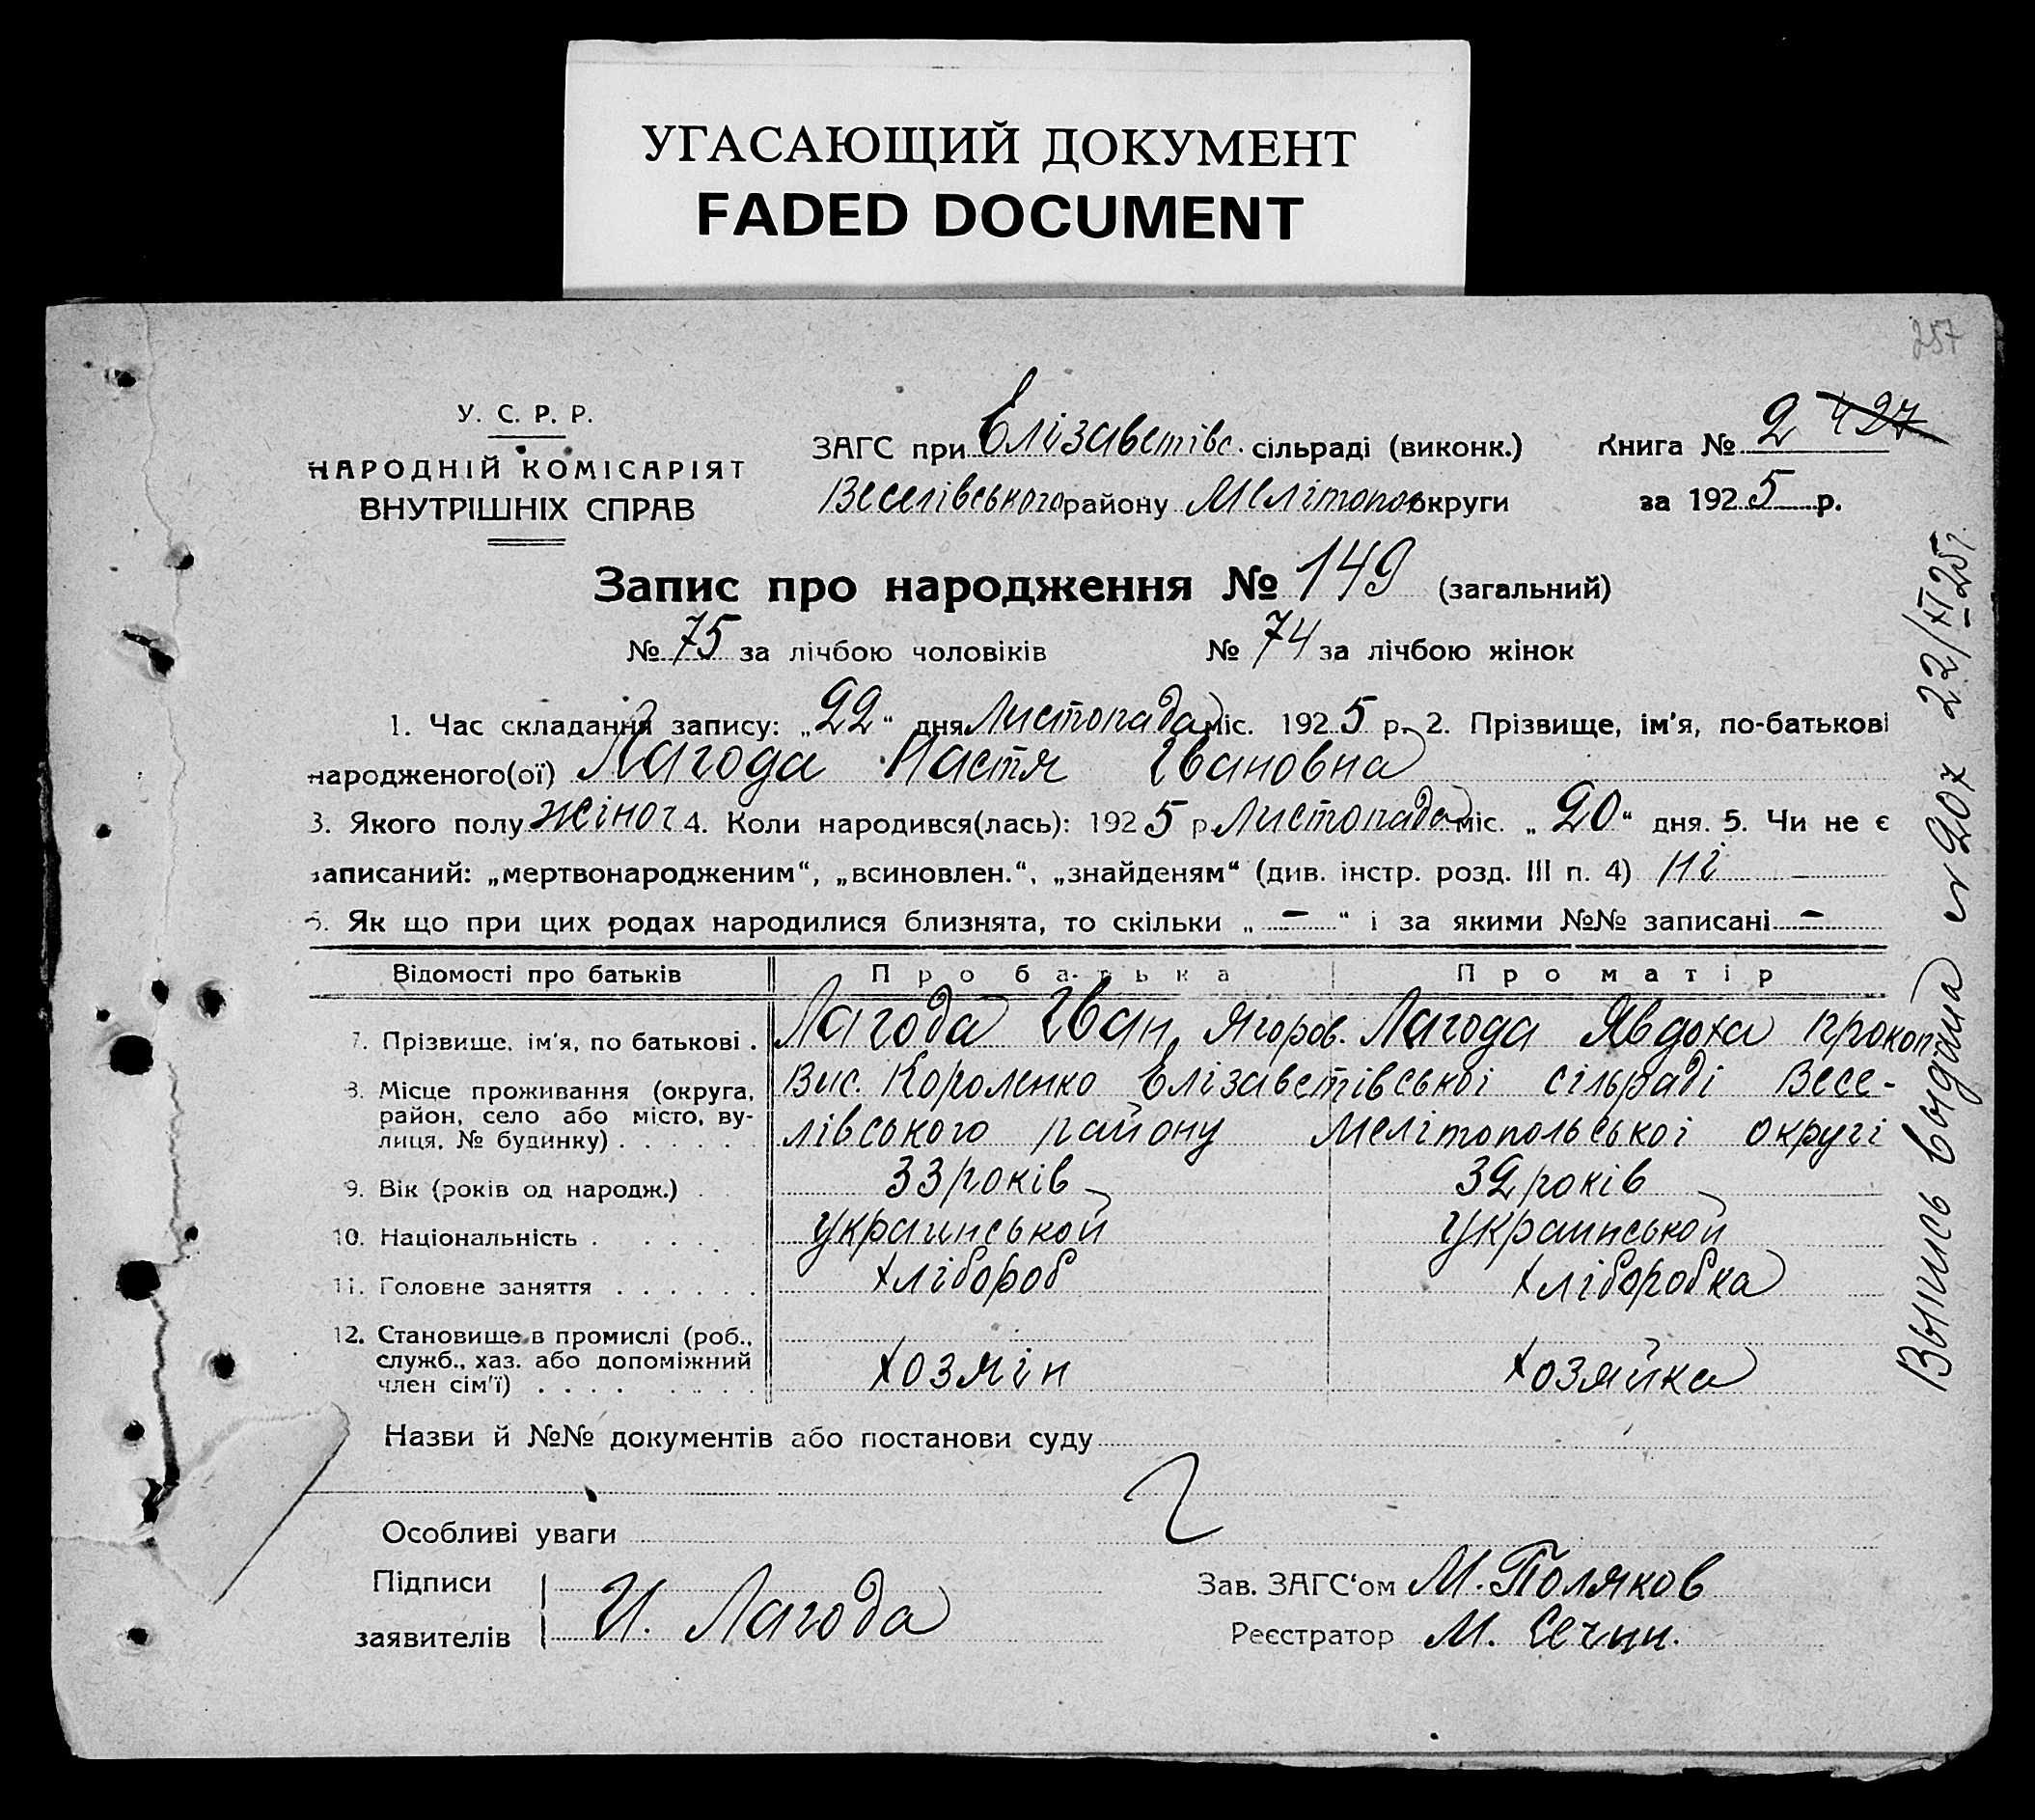 УГАСАЮЩИЙ ДОКУМЕНТ
FADED DOCUMENT
257
У. С. Р. Р.
НАРОДНІЙ КОМІСАРІЯТ
ВНУТРІШНІХ СПРАВ
ЗАГС при Елізаветівс. сільраді (виконк.)
Веселівського району Мелітопол округи
Книга № 2 427
за 1925 р.
Запис про народження № 149 (загальний)
№ 75 за лічбою чоловіків № 74 за лічбою жінок
1. Час складання запису: „22" дня Листопада міс. 1925 р. 2. Прізвище, ім'я, по-батькові
народженого(ої) Лагода Настя Івановна
3. Якого полу жіноч 4. Коли народився(лась): 1925 р. Листопада міс. „20" дня. 5. Чи не є
записаний: „мертвонародженим", „всиновлен.", „знайденям" (див. інстр. розд. III п. 4) ні
6. Як що при цих родах народилися близнята, то скільки „ – " і за якими №№ записані –
Відомості про батьків Про батька Про матір
7. Прізвище, ім'я, по батькові . Лагода Іван Ягоров. Лагода Явдоха Прокоп
8. Місце проживання (округа, Вис. Короленко Елізаветівської сільраді Весе-
район, село або місто, ву-
лиця, № будинку) . . . . . лівського району Мелітопольської округі
9. Вік (років од народж.) . 33 років 32 років
10. Національність . . . . . украинськой украинськой
11. Головне заняття . . . . . . хлібороб хліборобка
12. Становище в промислі (роб.,
служб., хаз. або допоміжний хозяін хозяйка
член сім'ї) . . . . . . . .
Назви й №№ документів або постанови суду
Особливі уваги
Підписи
заявителів И. Лагода
Зав. ЗАГС'ом М. Поляков
Реєстратор М. Сечин.
Выпись выдана № 207 22/XI 25 г.